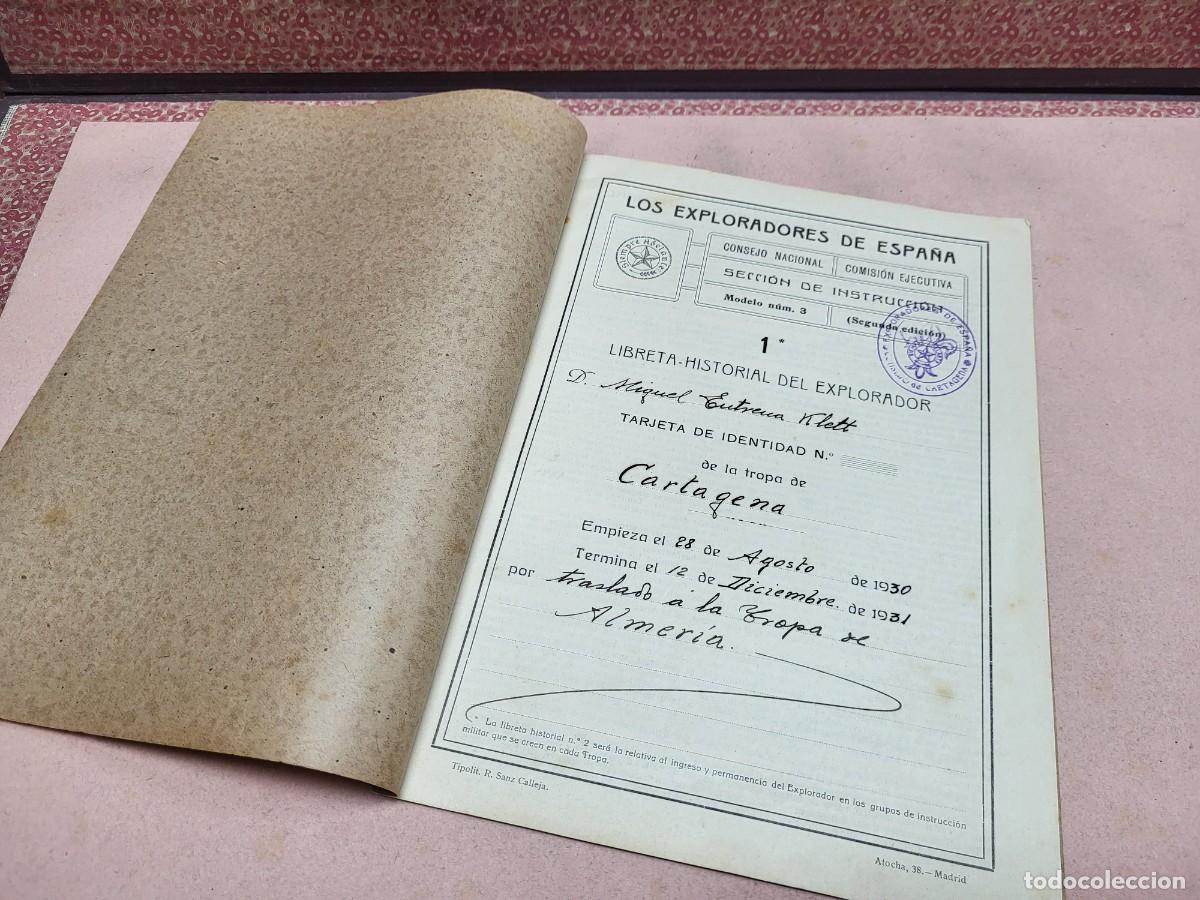 LOS EXPLORADORES DE ESPAÑA
Siempre Adelante
CONSEJO NACIONAL
COMISIÓN EJECUTIVA
SECCIÓN DE INSTRUCCIÓN
Modelo núm. 3
(Segunda edición)
EXPLORADORES DE ESPAÑA
DE CARTAGENA
1*
LIBRETA-HISTORIAL DEL EXPLORADOR
D. Miguel Entrena Klett
TARJETA DE IDENTIDAD N.º
de la tropa de
Cartagena
Empieza el 28 de Agosto de 1930
Termina el 12 de Diciembre. de 1931
por traslado á la Tropa de
Almería.
* La libreta historial n.º 2 será la relativa al ingreso y permanencia del Explorador en los grupos de instrucción
militar que se creen en cada Tropa.
Tipolit. R. Sanz Calleja.
Atocha, 38.—Madrid
todocoleccion